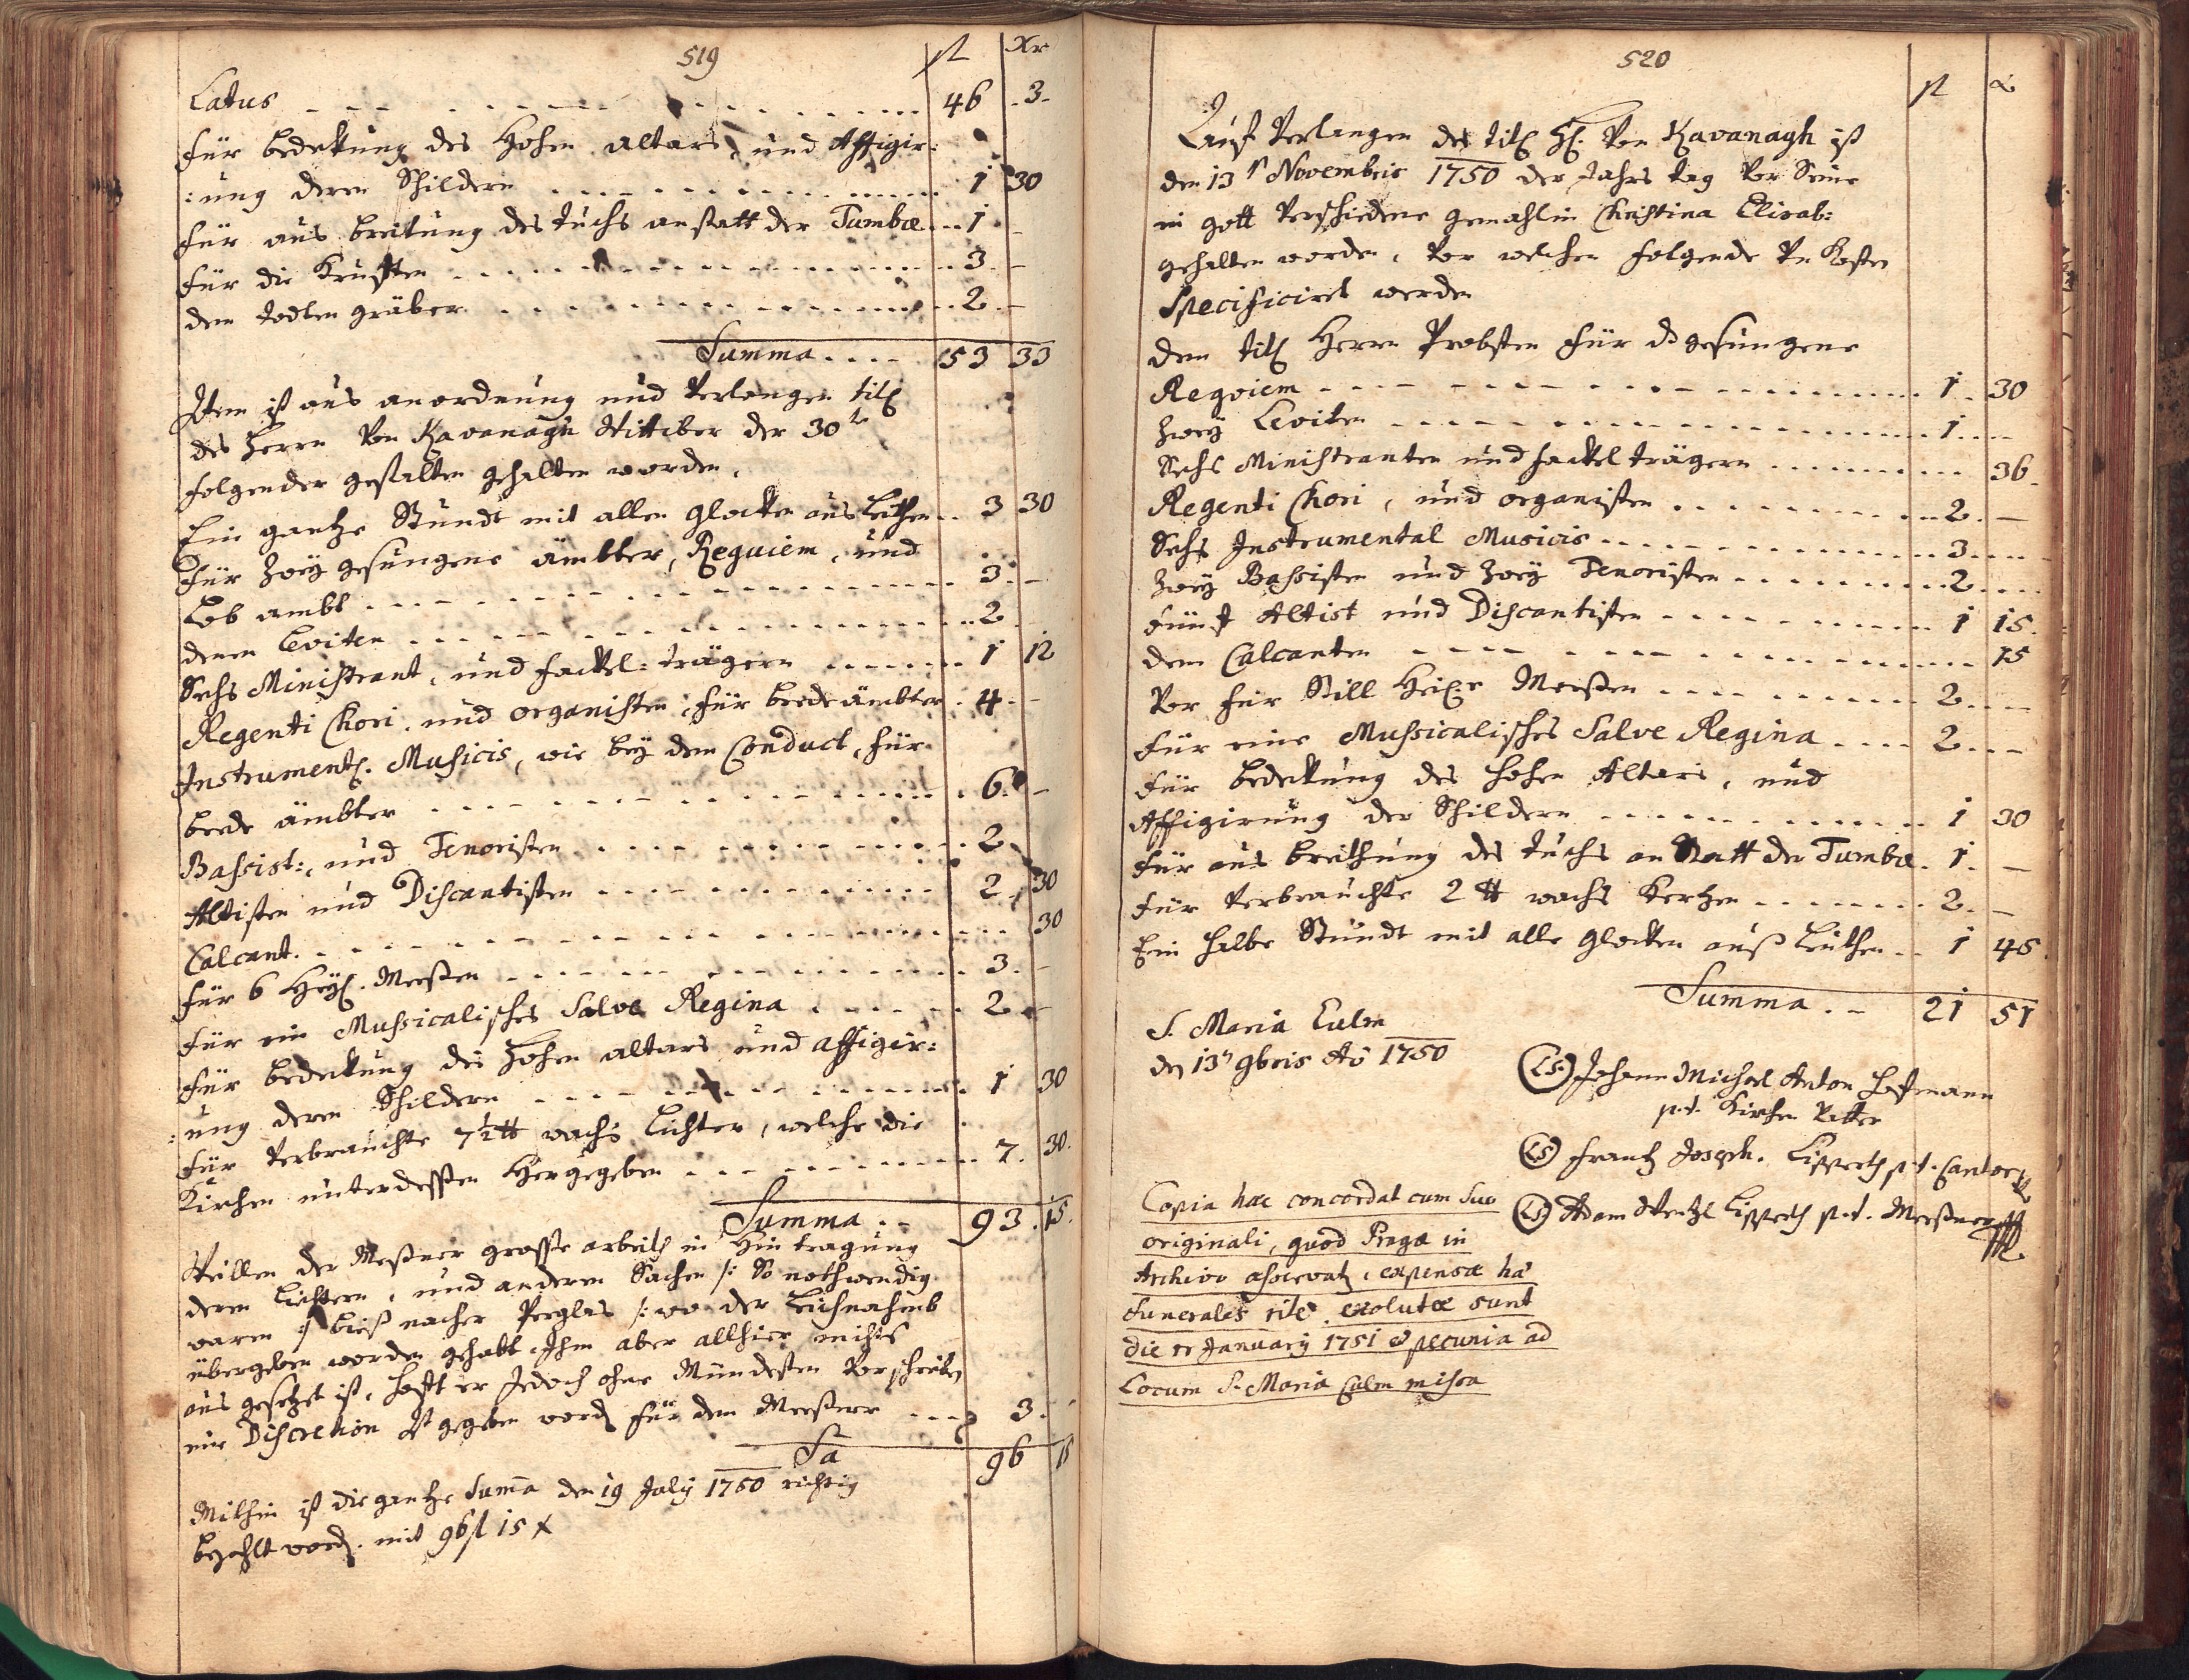 519
fl Xr
Latus - - - - - - 46 . 3 .
Für bedekung des Hohen altars, und Affigir:
:ung deren Schildern . . . . . . 1 30
Für aus breitung des tuchs anstatt der Tumbæ . . . 1 . -
Für die Krufften . . . . . . 3 . -
dem todten gräber . . . . . . 2 . -
Summa . . . . 53 33
Item ist aus anordnung und Verlangen tit:
des Herrn Von Kavanagh Wittiber der 30te
folgender gestalten gehalten worden.
Ein gantze Stundt mit allen glocken ausleithen . . 3 30
Für Zwey gesungene ämbter, Requiem, und
Lob ambt . . . . . . 3 . -
denen Leviten . . . . . . 2 . -
Sechs Ministrant, und fackel: trägern . . . . . . 1 12
Regenti Chori, und organisten, für beede ämbter . 4 . -
Instrument: Musicis, wie bey dem Conduct, für
beede ämbter . . . . . . 6 . -
Bassist:, und Tenoristen . . . . . . 2 .
Altisten und Discantisten . . . . . . 2 . 30
Calcant . . . . . . 30
für 6 Heyl. Meessen . . . . . . 3 . -
für ein Mussicalisches Salve Regina . . . . . . 2 . -
für bedekung des Hohen altars und affigir:
:ung deren Schildern . . . . . . 1 30
für Verbrauchte 7½ ℔ wachs Lichter, welche die
Kirchen unterdessen Hergegeben . . . . . . 7 . 30 .
Summa . . 93 . 15 .
Weillen der Messner grosse arbeith in Hin tragung
deren Lichtern, und anderen Sachen /: So nothwendig
waren :/ biess nacher Perglas /: wo der Leichnahmb
übergeben worden gehabt. Ihm aber allhier nichts
aus gesetzet ist, hofft er Jedoch ohne Mündesten Vorschreiben
eine Discretion Ist gegeben word. für dem Meessner . . . 3 . -
Sa 96 15
Mithin ist die gantze Summa den 19 July 1750 richtig
bezahlt word. mit 96 fl 15 x
520
fl x
Auf Verlangen des tit: H: Von Kavanagh ist
den 13t Novembris 1750 der Jahrs tag Vor Seine
in gott Verschiedene gemahlin Christina Elisab:
gehalten worden, Vor welchen folgende Un Kosten
Specificiret werden
dem tit: Herrn Probsten für d gesungene
Reqviem . . . . . . 1 . 30
Zwey Leviten . . . . . . 1 . . .
Sechs Ministranten und fackel trägern . . . . . . 36 .
Regenti Chori, und organisten . . . . . . 2 . -
Sechs Instrumental Musicis . . . . . . 3 . . .
Zwey Bassisten und Zwey Tenoristen . . . . . . 2 . . .
Fünf Altist und Discantisten . . . . . . 1 15 .
dem Calcanten . . . . . . 15
Vor Still Meessen . . . . . . 2 . . .
Für eine Mussicalisches Salve Regina . . . . 2 . . -
Für bedekung des hohen Altars, und
Affigirung der Schildern . . . . . . 1 30
Für aus breithung des tuchs an Statt der Tumbæ . 1 . -
Für Verbrauchte 2 ℔ wachs Kertzen . . . . . . 2 . -
Ein halbe Stundt mit alle glocken auss Leuthen . . 1 45 .
Summa . - 21 51
S. Maria Culm
den 13t 9bris Aõ 1750
(LS) Johann Michael Anton Hoffmann
p.t. Kirchen Vatter
(LS) Frantz Joseph. Lippert p.t. Cantor
(LS) Adam Wentzl Lippert p.t. Meessner
Copia hæc concordat cum suo
originali, quod Pragæ in
Archivo asservat, expensæ hæ
funerales rite exolutæ sunt
die 11 January 1751 et pecunia ad
Locum S. Maria Culm missa